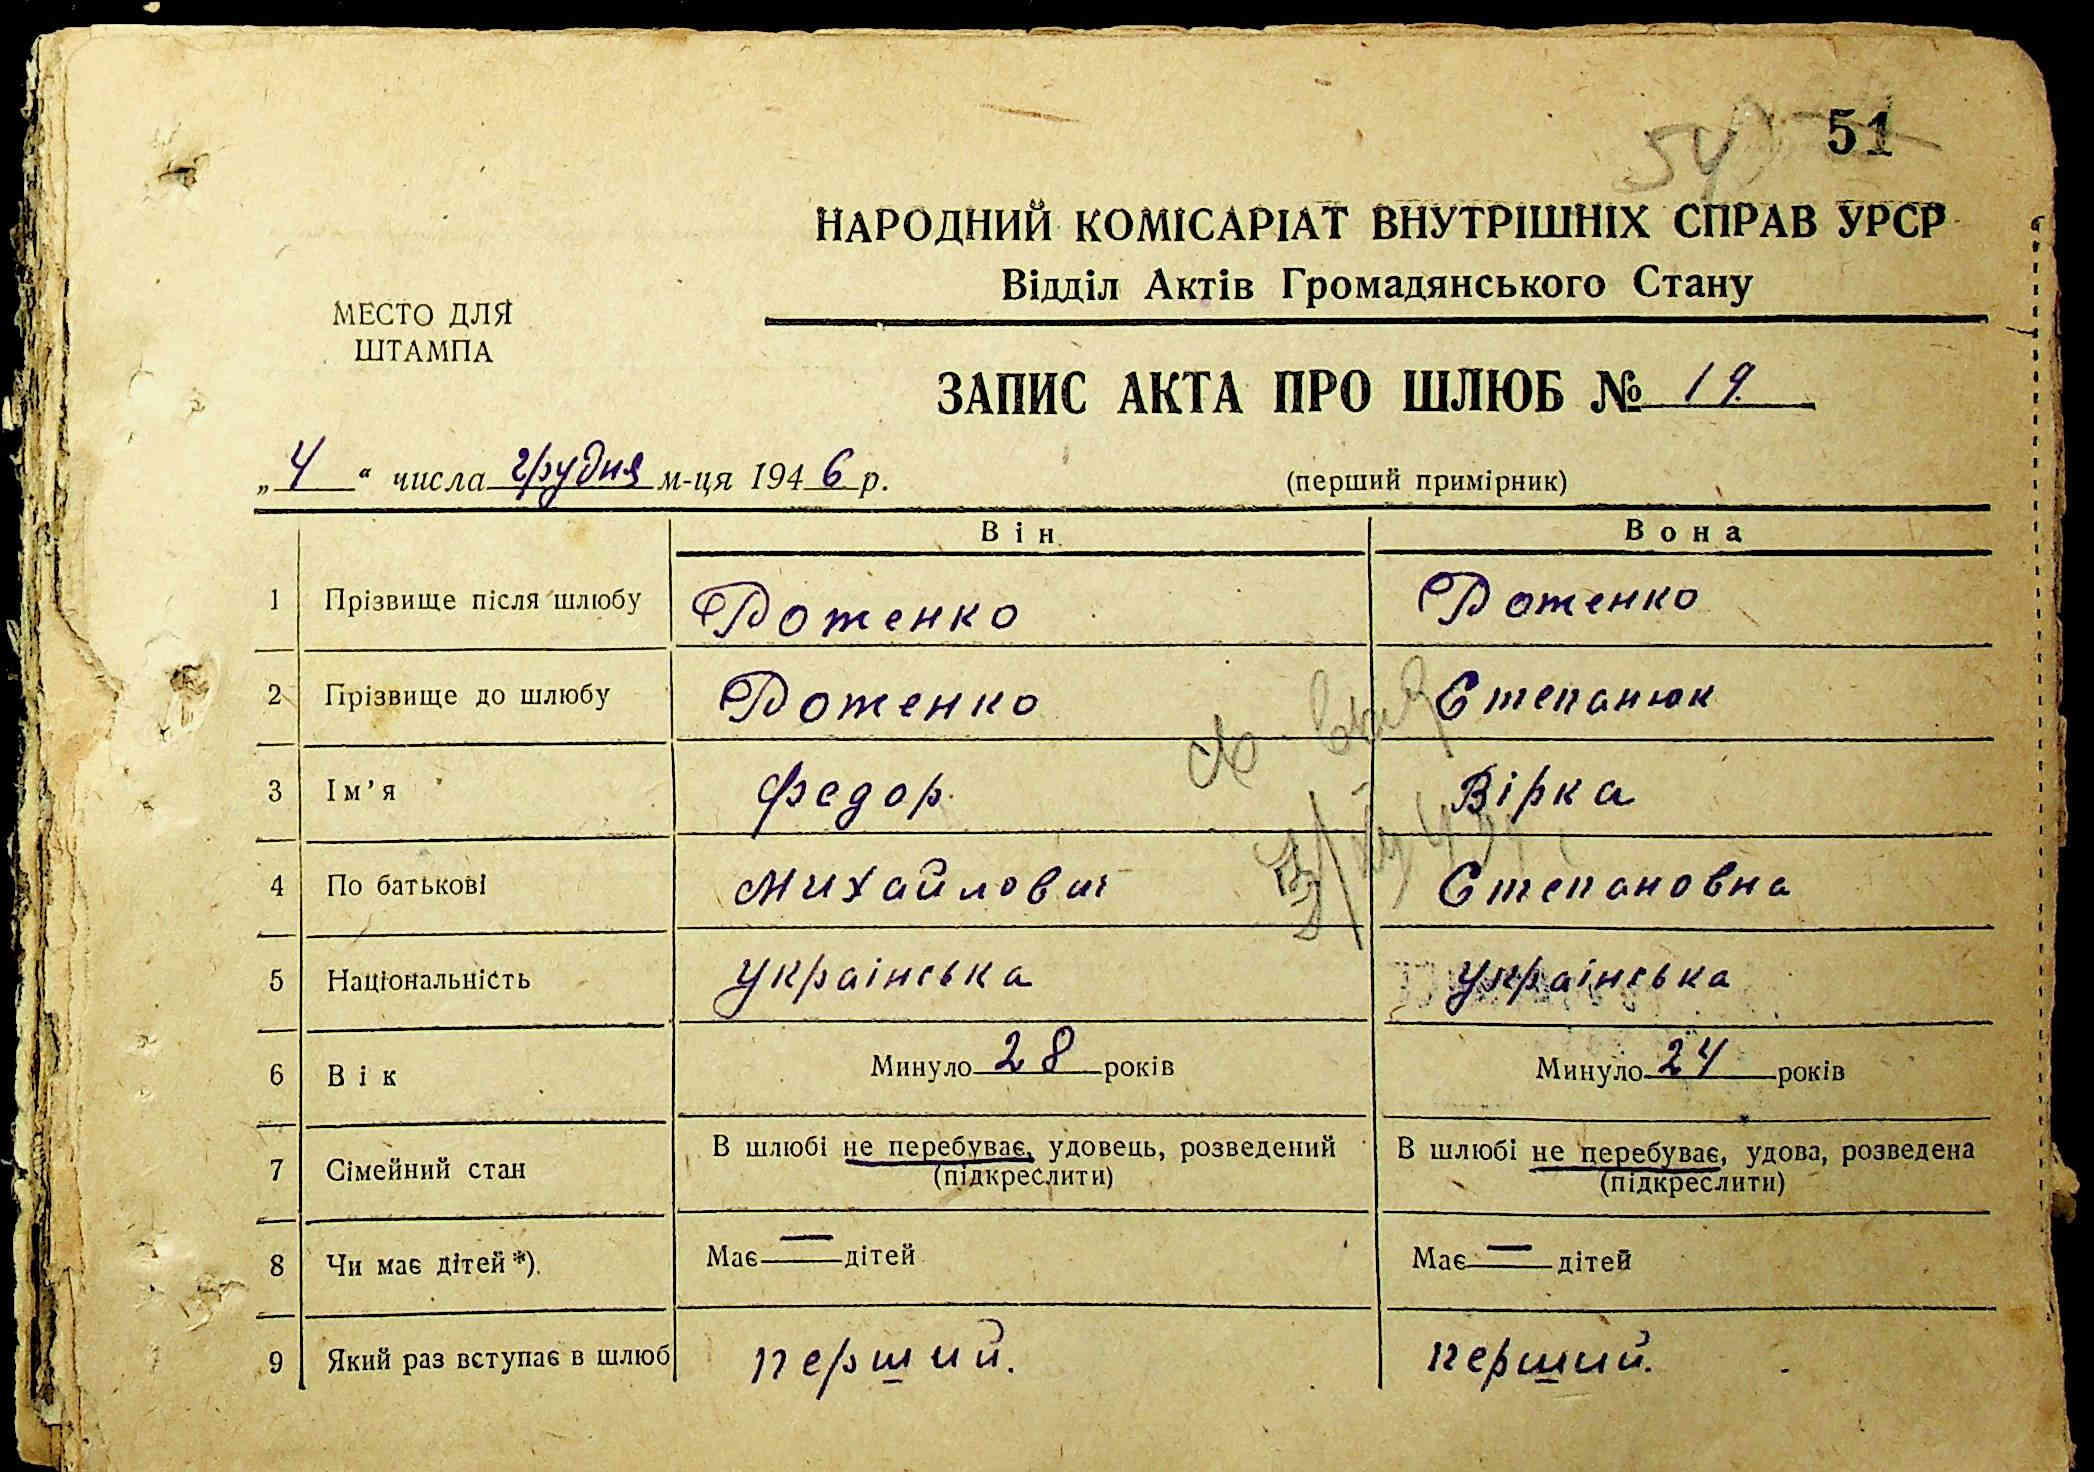 54 51
НАРОДНИЙ КОМІСАРІАТ ВНУТРІШНІХ СПРАВ УРСР
Відділ Актів Громадянського Стану
МЕСТО ДЛЯ
ШТАМПА
ЗАПИС АКТА ПРО ШЛЮБ № 19.
„4“ числа грудня м-ця 1946 р.
(перший примірник)
Він Вона
1 Прізвище після шлюбу Доженко Доженко
2 Прізвище до шлюбу Доженко Степанюк
3 Ім’я Федор Вірка
4 По батькові Михайлович Степановна
5 Національність українська українська
6 Вік Минуло 28 років Минуло 24 років
7 Сімейний стан В шлюбі не перебуває, удовець, розведений В шлюбі не перебуває, удова, розведена
(підкреслити) (підкреслити)
8 Чи має дітей*). Має — дітей Має — дітей
9 Який раз вступає в шлюб перший. перший.